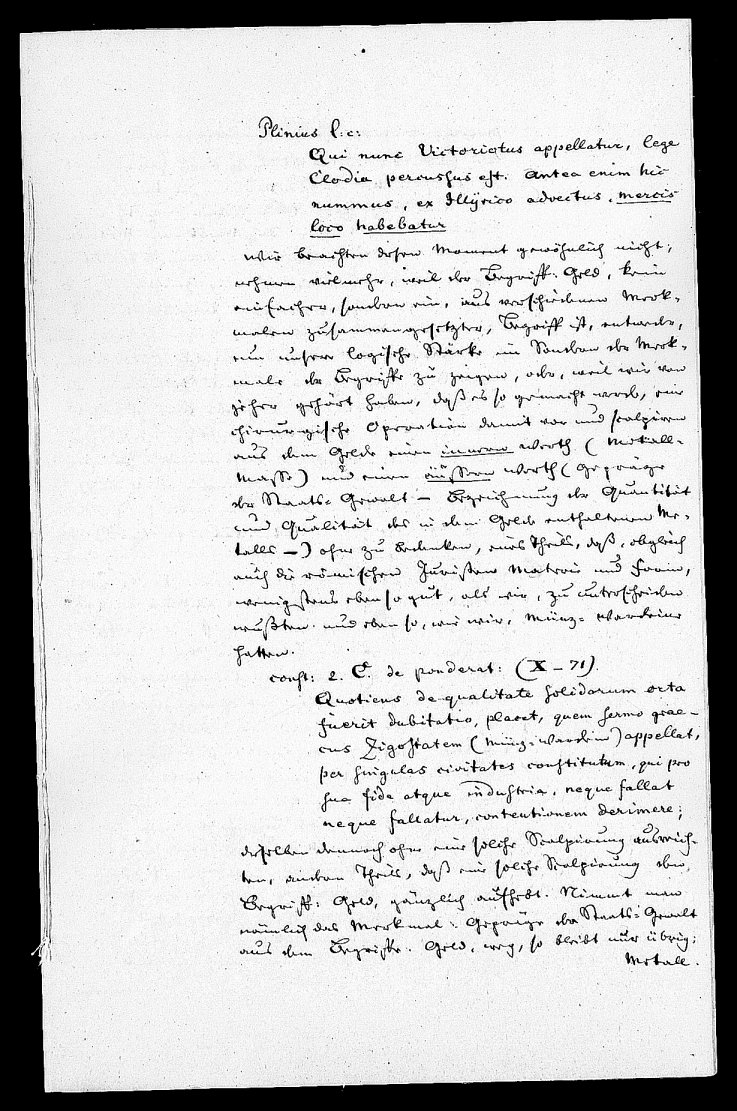 Plinius l:c:
Qui nunc Victoriatus appellatur, lege
Clodia percussus est. Antea enim hic
nummus, ex Illÿrico advectus, mercis
loco habebatur
Wir beachten diesen Moment gewöhnlich nicht;
nehmen vielmehr, weil der Begriff: Geld, kein
einfacher, sondern ein, aus verschiedenen Merk-
malen zusammengesetzter, Begriff ist, entweder,
um unsere logische Stärke im Sondern der Merk-
male der Begriffe zu zeigen, oder, weil wir von
jeher gehört haben, daß es so gemacht werde, eine
chirurgische Operation damit vor und scalpiren
aus dem Gelde einen innern Werth (Metall-
Masse) und einen äussern Werth (Gepräge
der Staats-Gewalt – Bezeichnung der Quantität
und Qualität des in dem Gelde enthaltenen Me-
talls –) ohne zu bedenken, eines Theils, daß, obgleich
auch die römischen Juristen Materie und Form,
wenigstens eben so gut, als wir, zu unterscheiden
wußten und eben so, wie wir, Münz-Wardeine
hatten.
const: 2. C. de ponderat: (X – 71)
Quoticus de qualitate solidorum orta
fuerit dubitatio, placet, quem sermo grae-
cus Zigostatem (Münzwardein) appellat,
per singulas civitates constitutum, qui pro
sua fide atque industria, neque fallat
neque fallatur, contentionem derimere;
dieselben dennoch ohne eine solche Scalpirung ausreich-
ten, andern Theils, daß eine solche Scalpirung den
Begriff: Geld, gänzlich aufhebt. Nimmt man
nämlich das Merkmal: Gepräge der Staats-Gewalt
aus dem Begriffe: Geld, weg, so bleibt nur übrig:
Metall.